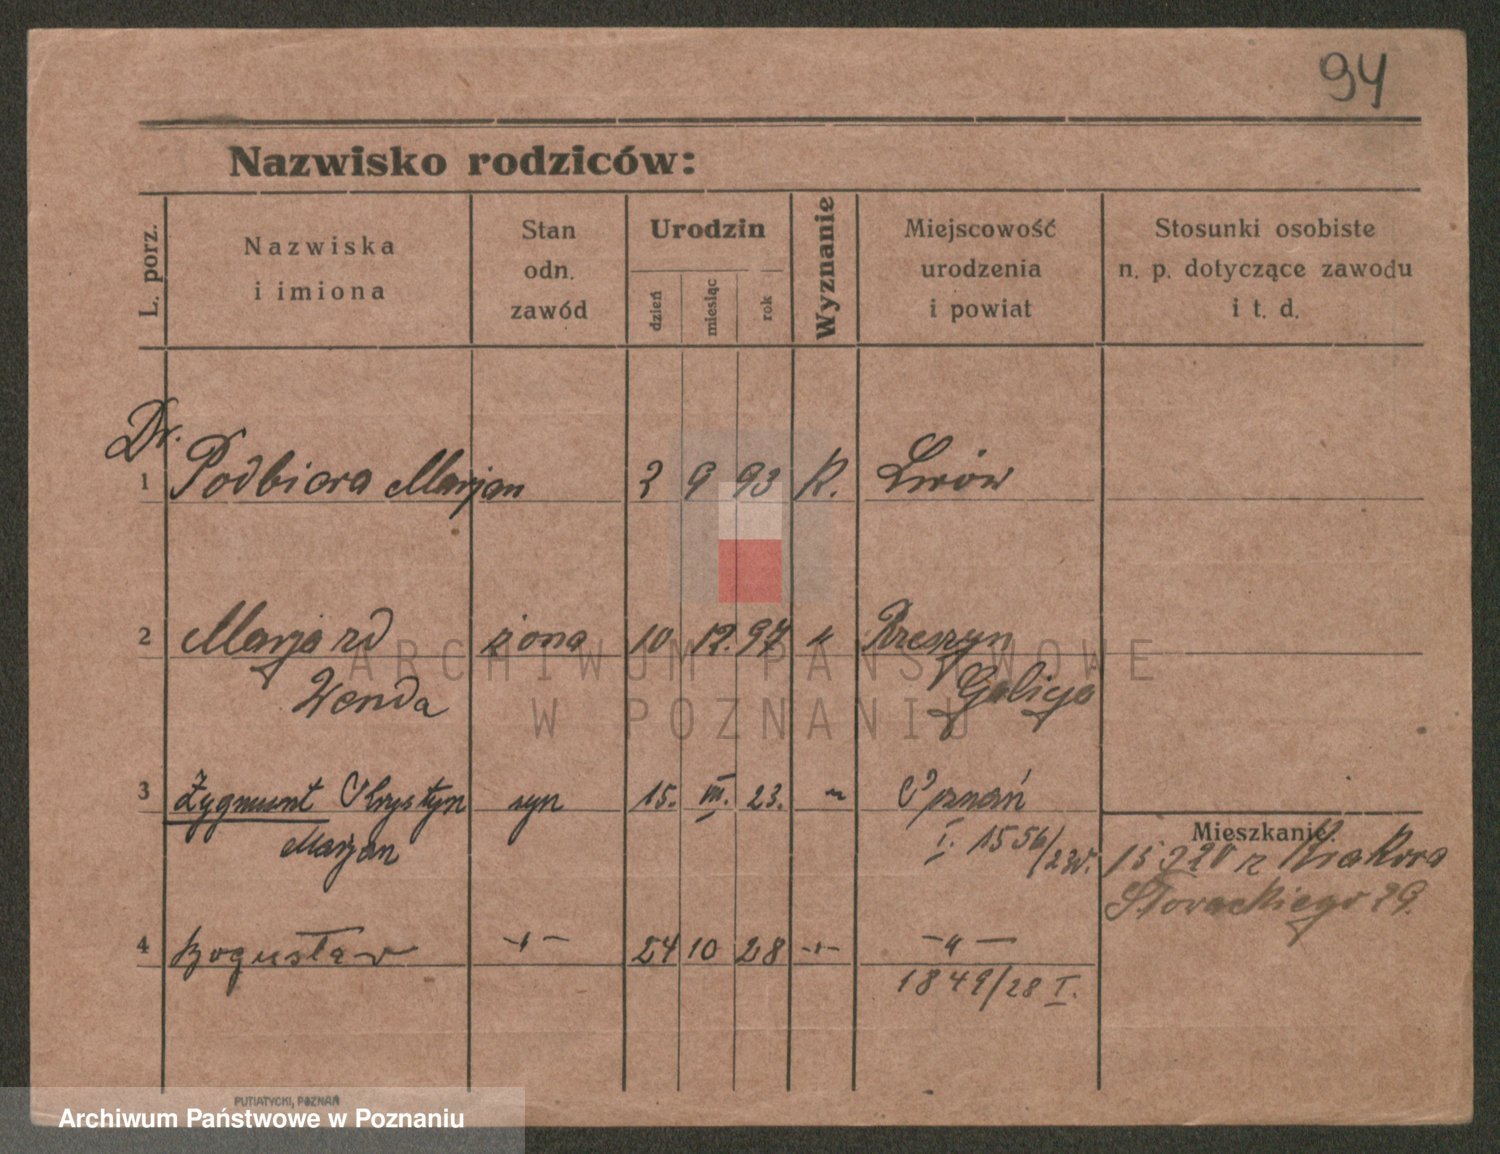 94
Nazwisko rodziców:
L. porz.
Nazwiska
i imiona
Stan
odn.
zawód
Urodzin
dzień
miesiąc
rok
Wyznanie
Miejscowość
urodzenia
i powiat
Stosunki osobiste
n. p. dotyczące zawodu
i t. d.
Dr.
1 Podbiera Marjan 2 9 93 R. Lwów
2 Marja żona 10 12. 97 "
Wanda Galicja
3 Zygmunt Chrystyn syn 15. III. 23. " Poznań
Marjan I. 1556/23
Mieszkanie:
15 9 20 z Krakowa
Słowackiego 29.
4 Bogusław -"- 24 10 28 -"- -"-
1849/28 I.
ARCHIWUM PAŃSTWOWE
W POZNANIU
PUTIATYCKI, POZNAŃ
Archiwum Państwowe w Poznaniu